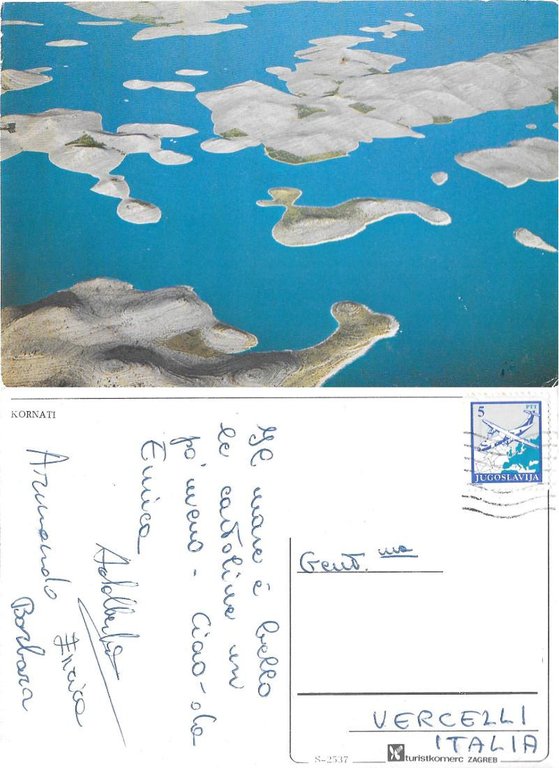 KORNATI
Il mare è bello
le cartoline un
pò meno - Ciao - da
Enrica
Adalberto
Enrica
Armando
Barbara
5
PTT
JUGOSLAVIJA
Gent.ma
VERCELLI
ITALIA
S-2537
turistkomerc ZAGREB